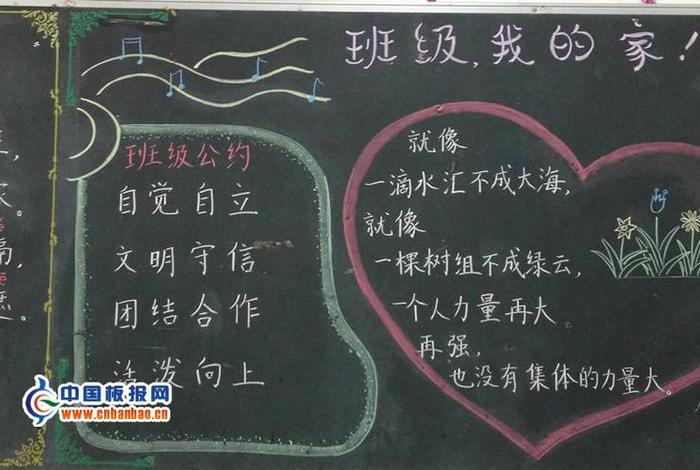 班级,我的家!
班级公约
自觉自立
文明守信
团结合作
活泼向上
就像
一滴水汇不成大海,
就像
一棵树组不成绿云,
一个人力量再大
再强,
也没有集体的力量大。
中国板报网
www.cnbanbao.cn